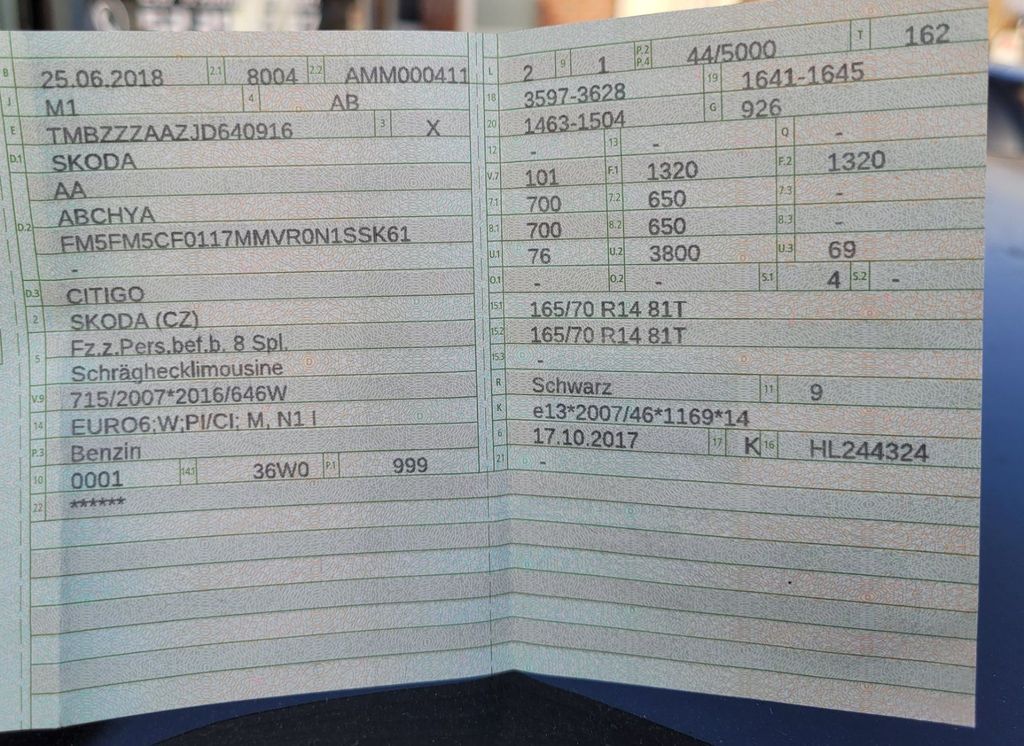 B 25.06.2018 2.1 8004 2.2 AMM000411
J M1 4 AB
E TMBZZZAAZJD640916 3 X
D.1 SKODA
AA
D.2 ABCHYA
FM5FM5CF0117MMVR0N1SSK61
-
D.3 CITIGO
2 SKODA (CZ)
5 Fz.z.Pers.bef.b. 8 Spl.
Schräghecklimousine
V.9 715/2007*2016/646W
14 EURO6;W;PI/CI; M, N1 I
P.3 Benzin
10 0001 14.1 36W0 P.1 999
22 ******
L 2 9 1 P.2 P.4 44/5000 T 162
18 3597-3628 19 1641-1645
20 1463-1504 G 926
12 - 13 - Q -
V.7 101 F.1 1320 F.2 1320
7.1 700 7.2 650 7.3 -
8.1 700 8.2 650 8.3 -
U.1 76 U.2 3800 U.3 69
O.1 - O.2 - S.1 4 S.2 -
15.1 165/70 R14 81T
15.2 165/70 R14 81T
15.3 -
R Schwarz 11 9
K e13*2007/46*1169*14
6 17.10.2017 17 K 16 HL244324
21 -